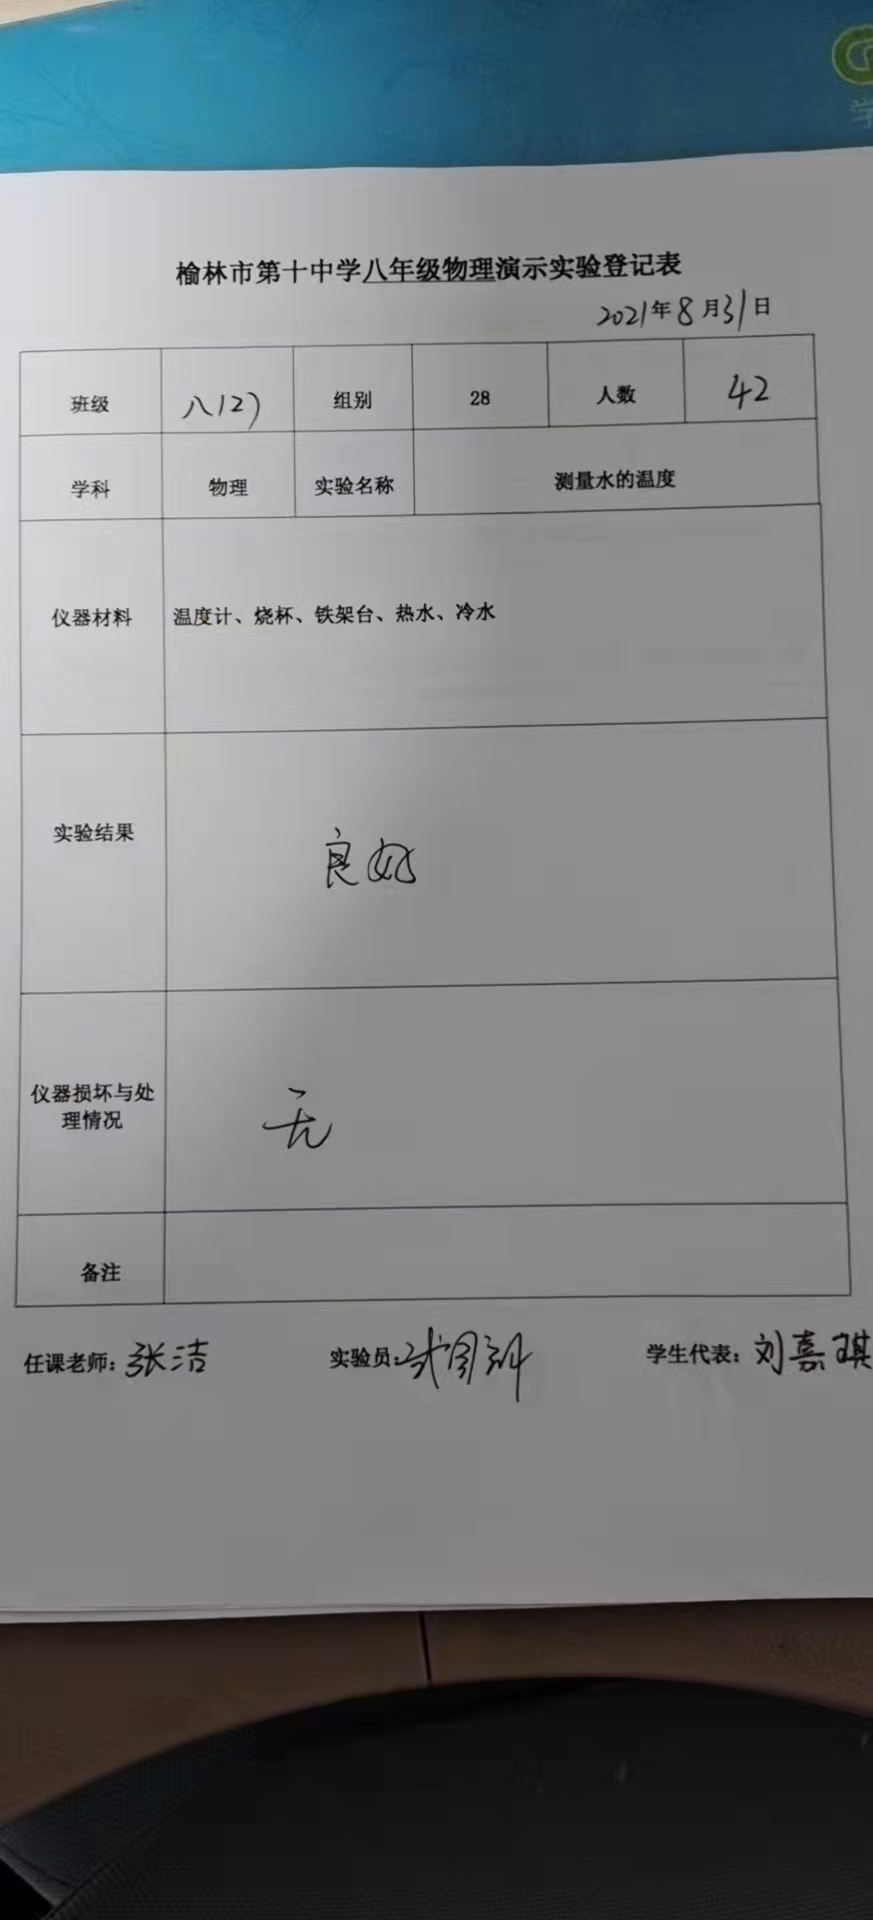 学
榆林市第十中学八年级物理演示实验登记表
2021年8月31日
班级 八(2) 组别 28 人数 42
学科 物理 实验名称 测量水的温度
仪器材料 温度计、烧杯、铁架台、热水、冷水
实验结果 良好
仪器损坏与处
理情况 无
备注
任课老师：张洁 实验员： 学生代表：刘嘉琪